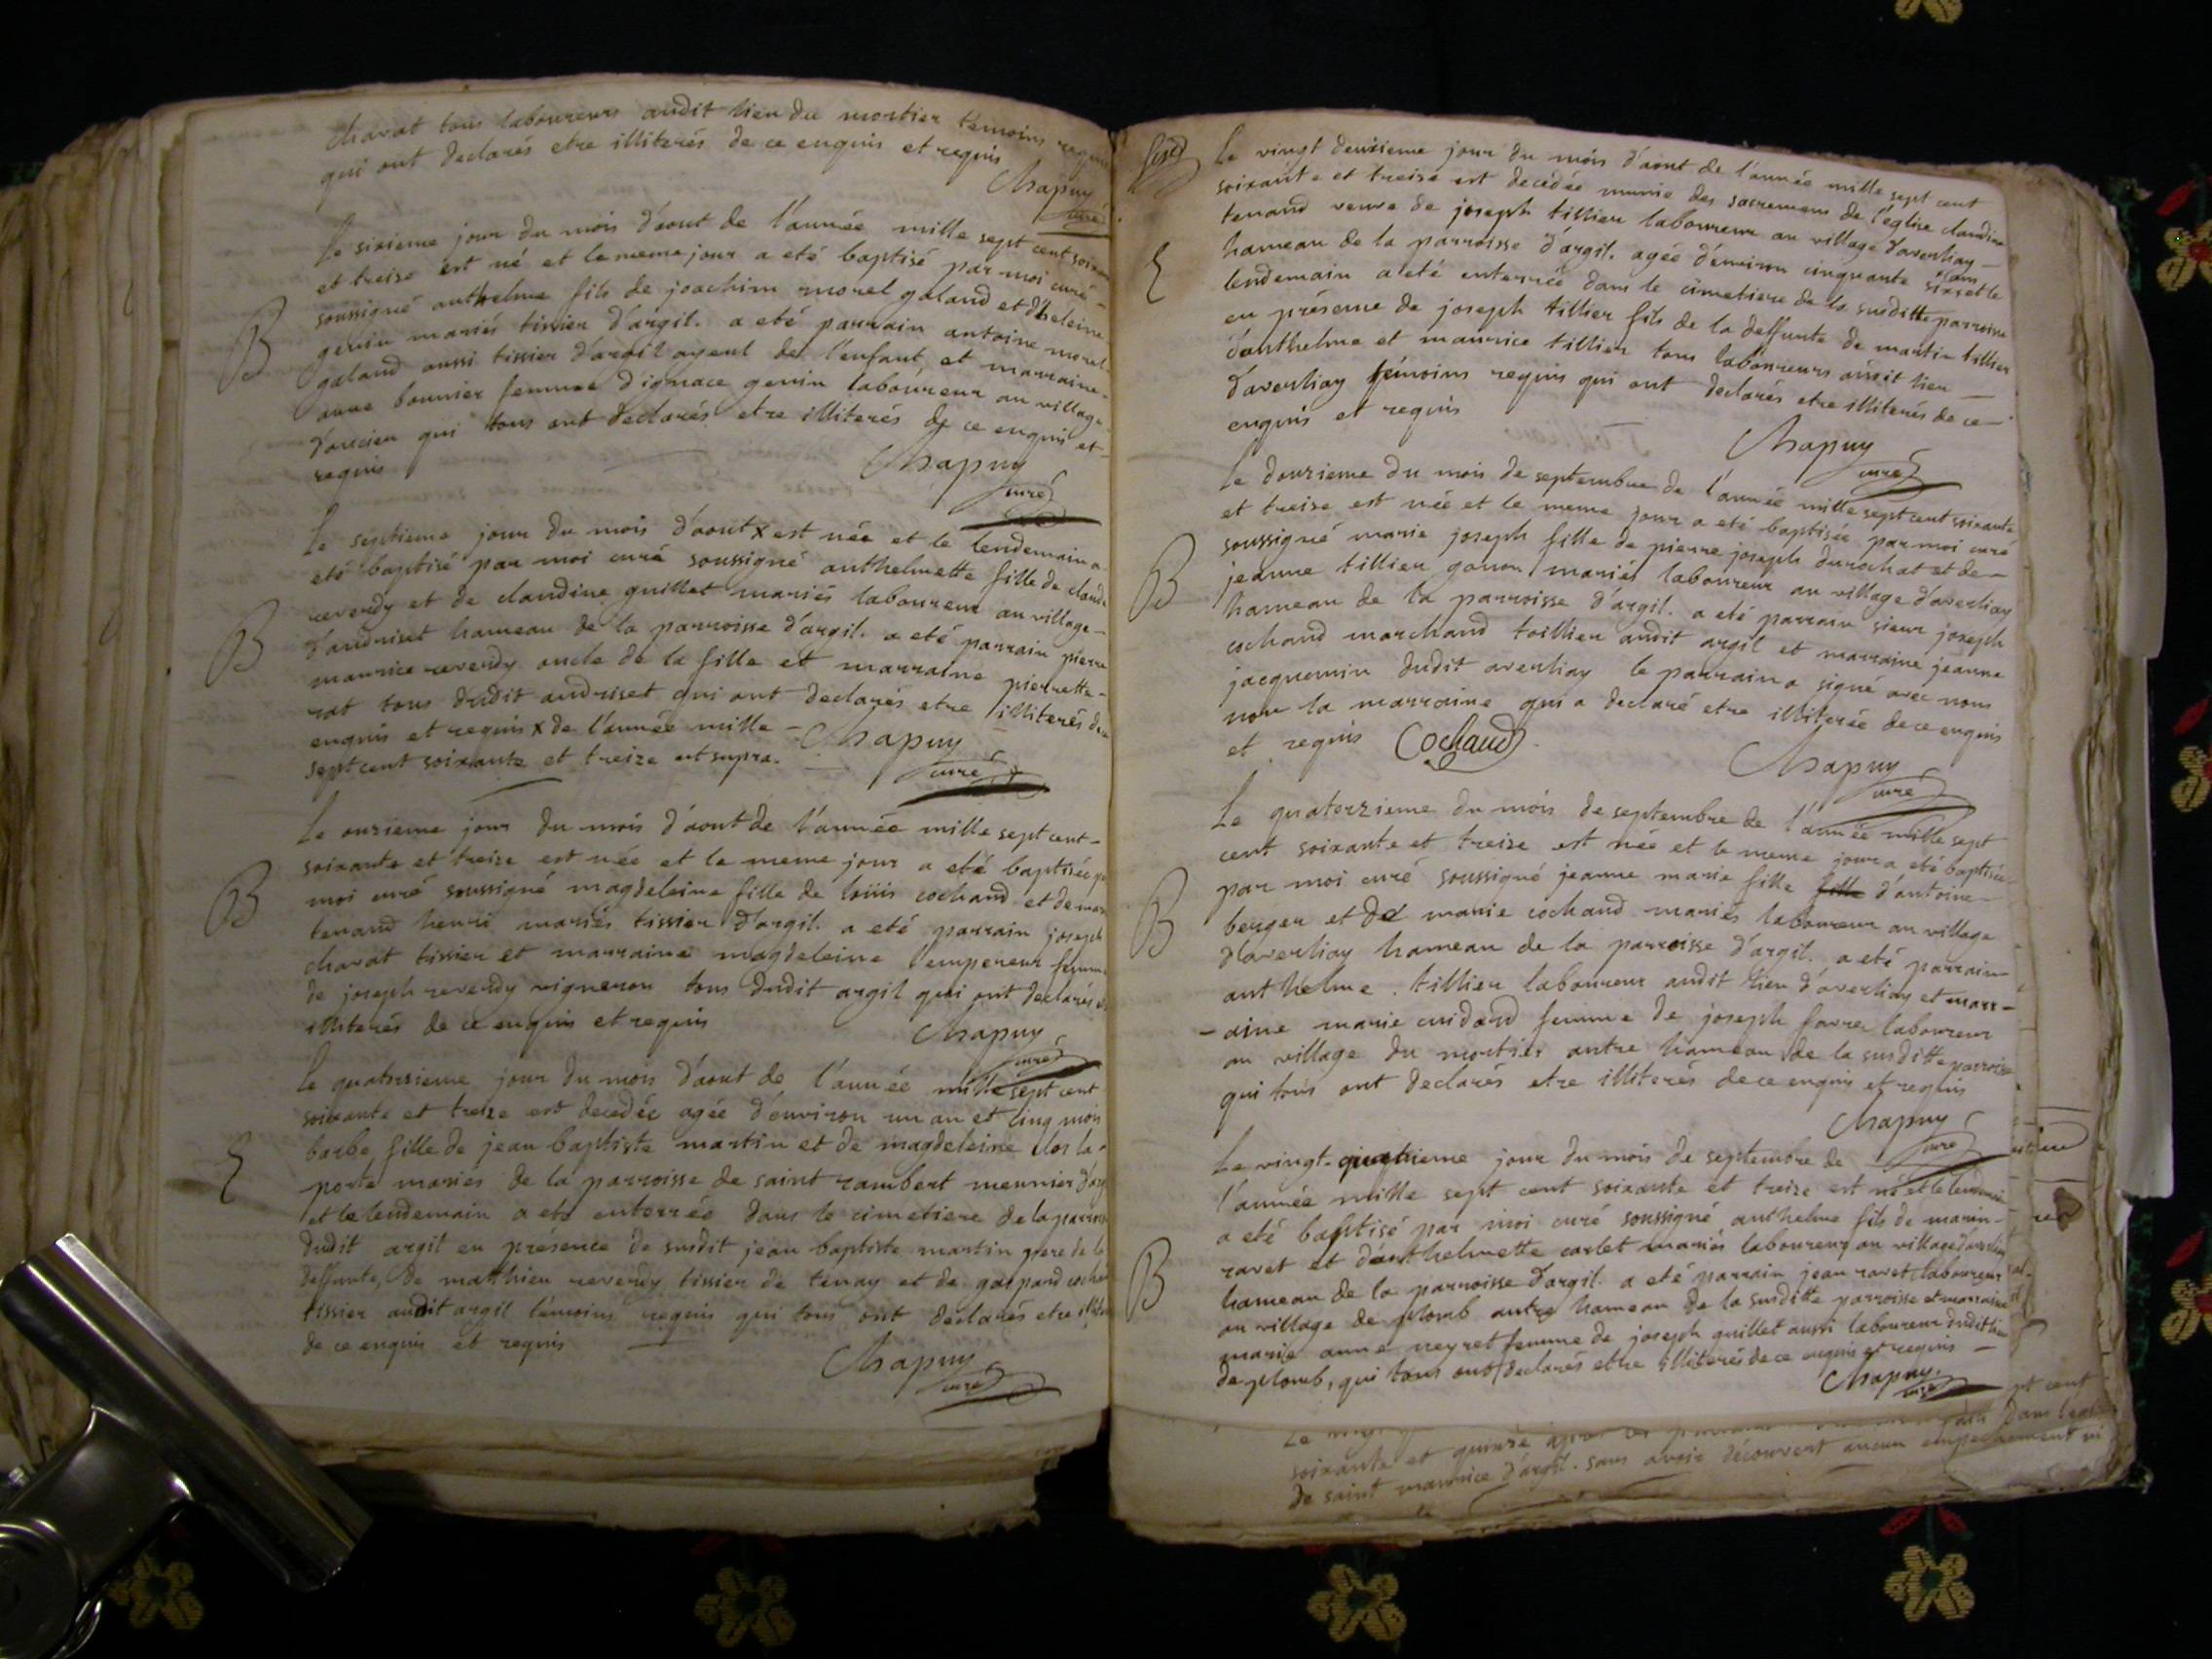 charat tous laboureurs audit lieu du mortier temoins requis
qui ont declarés etre illiterés de ce enquis et requis
Chapuy
curé
Le sixieme jour du mois d'aout de l'année mille sept cent soixante
et treise est né et le meme jour a eté baptisé par moi curé -
B
soussigné anthelme fils de joachim morel galand et d'heleine
genin mariés tissier d'argil. a eté parrain antoine morel-
galand aussi tissier d'argil ayeul de l'enfant, et marraine-
anne bonnier femme d'ignace genin laboureur au village-
qui tous ont declarés etre illiterés de ce enquis et-
requis
Chapuy
curé
Le septieme jour du mois d'aout x est née et le lendemain a
eté baptisé par moi curé soussigné anthelmette fille de claude
B
reverdy et de claudine guillet mariés laboureur au village-
d'andriset hameau de la parroisse d'argil. a eté parrain pierre
maurice reverdy oncle de la fille et marraine pierrette-
rat tous dudit andriset qui ont declarés etre illiterés de ce
enquis et requis x de l'année mille -
sept cent soixante et treize ut supra.
Chapuy
curé
Le onzieme jour du mois d'aout de l'année mille sept cent-
soixante et treize est née et le meme jour a eté baptisée par
B
moi curé soussigné magdeleine fille de loüis cochand et de
tenand henri mariés tissier d'argil. a eté parrain joseph
charat tissier et marraine magdeleine l'empereur femme
de joseph reverdy vigneron tous dudit argil qui ont declarés etre
illiterés de ce enquis et requis
Chapuy
curé
Le quatorzieme jour du mois d'aout de l'année mille sept cent
soixante et treize est decedée agée d'environ un an et cinq mois
barbe fille de jean baptiste martin et de magdeleine clos la-
E
porte mariés de la parroisse de saint rambert meunier d'argil
et le lendemain a eté enterrée dans le cimetiere de la parroisse
dudit argil en présence de susdit jean baptiste martin pere de la
deffunte, de matthieu reverdy tissier de tenay et de gaspard cochand
tissier audit argil témoins requis qui tous ont declarés etre illiterés
de ce enquis et requis
Chapuy
curé
Le vingt deuxieme jour du mois d'aout de l'année mille sept cent
soixante et treise est decédée munie des sacremens de l'église claudine
tenand veuve de joseph tillier laboureur au village d'averliay-
E
hameau de la parroisse d'argil. agée d'environ cinquante six ans et le
lendemain a eté enterrée dans le cimetiere de la susditte parroisse
en présence de joseph tillier fils de la deffunte de martin tillier
d'anthelme et maurice tillier tous laboureurs audit lieu -
d'averliay témoins requis qui ont declarés etre illiterés de ce-
enquis et requis
Chapuy
curé
Le douzieme du mois de septembre de l'année mille sept cent soixante
et treize est née et le meme jour a eté baptisée par moi curé
B
soussigné marie joseph fille de pierre joseph durochat et de-
jeanne tillier gonon mariés laboureur au village d'averliay
hameau de la parroisse d'argil. a eté parrain sieur joseph
cochand marchand toillier audit argil et marraine jeanne
jacquemin dudit averliay le parrain a signé avec nous
non la marraine qui a declaré etre illiterée de ce enquis
et requis Cochaud
Chapuy
curé
Le quatorzieme du mois de septembre de l'année mille sept
cent soixante et treize est née et le meme jour a eté baptisée-
B
par moi curé soussigné jeanne marie fille fille d'antoine-
berger et de marie cochand mariés laboureur au village
d'averliay hameau de la parroisse d'argil. a eté parrain
anthelme tillier laboureur audit lieu d'averliay et marr-
-aine marie cuidard femme de joseph favre laboureur
au village du mortier autre hameau de la susditte parroisse
qui tous ont declarés etre illiterés de ce enquis et requis
Chapuy
curé
Le vingt-quatrieme jour du mois de septembre de
l'année mille sept cent soixante et treize est né et le lendemain
a eté baptisé par moi curé soussigné anthelme fils de marin-
B
ravet et d'anthelmette carlet mariés laboureur au village d'averliay
hameau de la parroisse d'argil. a eté parrain jean ravet laboureur
au village de plomb autre hameau de la susditte parroisse et marraine
marie anne neyret femme de joseph guillet aussi laboureur dudit lieu
de plomb, qui tous ont declarés etre illiterés de ce enquis et requis -
Chapuy.
curé
soixante et quinze
de saint maurice d'argil. sans avoir découvert aucun empechement ni